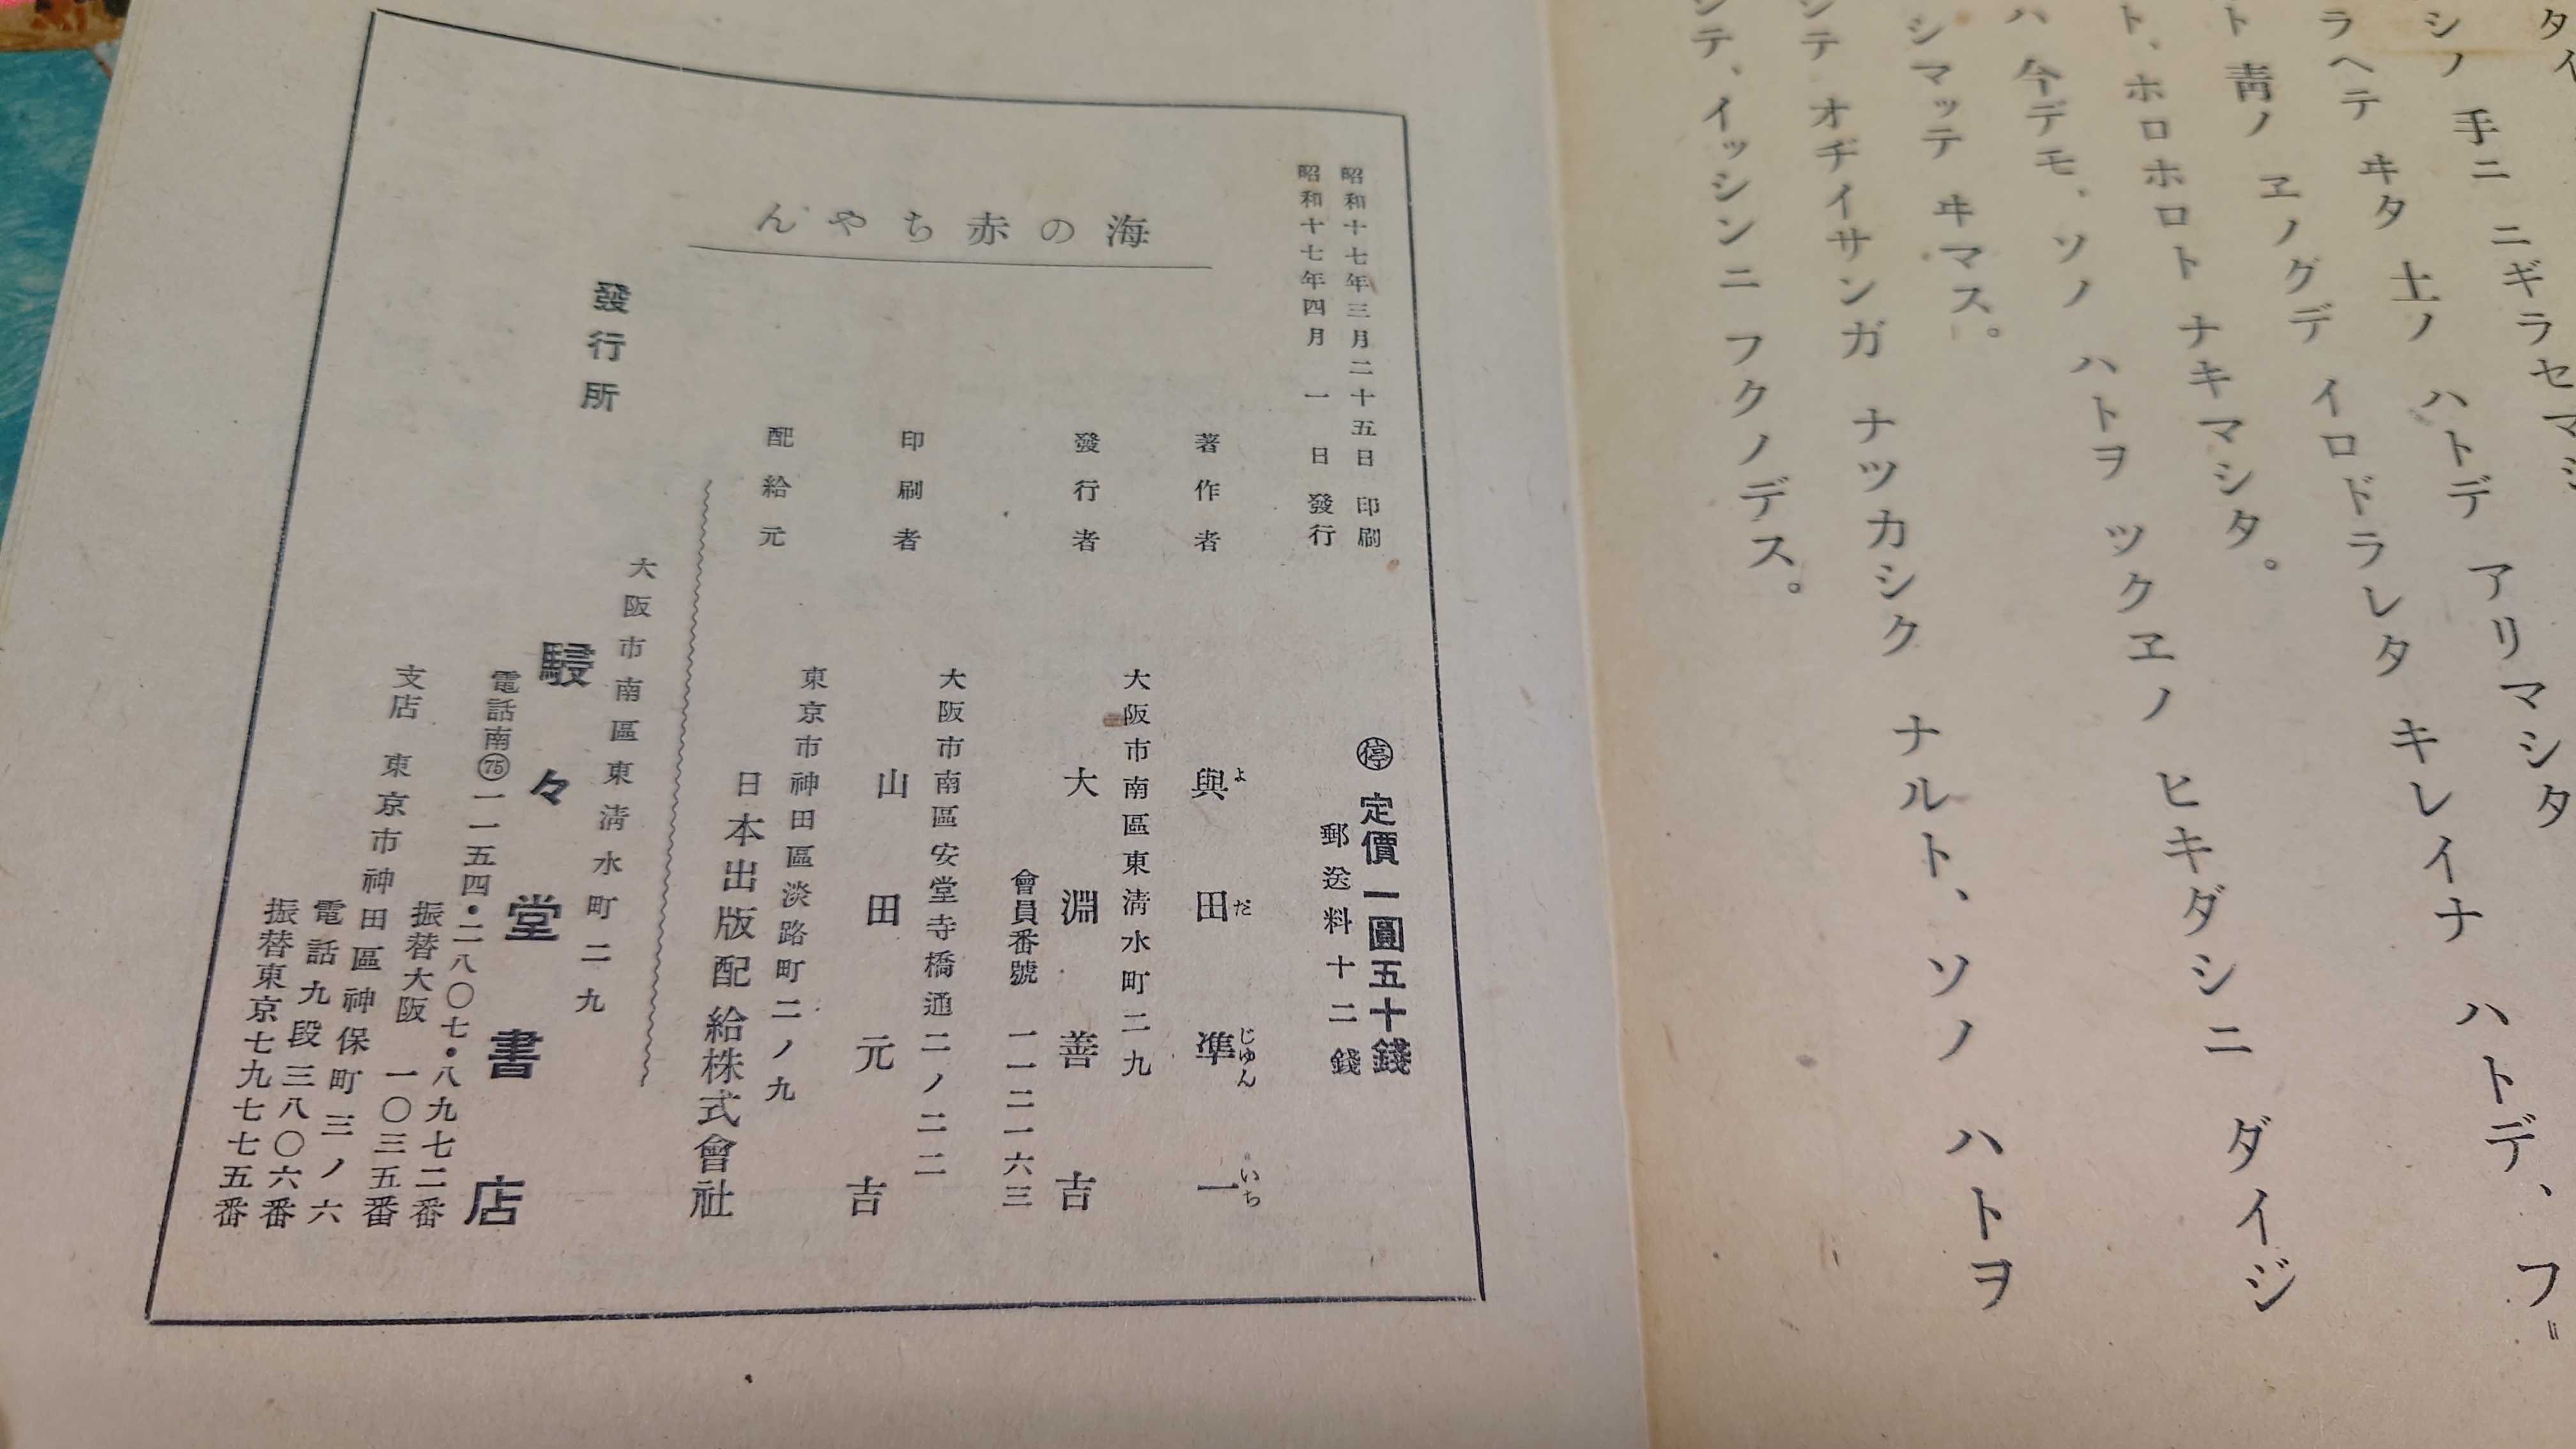 タイ
シノ 手ニ ニギラセマシ
ラヘテ ヰタ 土ノ ハトデ アリマシタ
ト 靑ノ ヱノグデ イロドラレタ キレイナ ハトデ、フ
ト、ホロホロト ナキマシタ。
ハ 今デモ、ソノ ハトヲ ツクヱノ ヒキダシニ ダイジ
シマッテ ヰマス。
シテ オヂイサンガ ナツカシク ナルト、ソノ ハトヲ
シテ、イッシンニ フクノデス。
昭和十七年三月二十五日 印刷
昭和十七年四月 一 日 發行
停 定價一圓五十錢
郵送料十二錢
海の赤ちやん
著作者 與田凖一
よだじゆんいち
大阪市南區東淸水町二九
發行者 大淵善吉
會員番號 一一二一六三
大阪市南區安堂寺橋通二ノ二二
印刷者 山田元吉
東京市神田區淡路町二ノ九
配給元 日本出版配給株式會社
大阪市南區東淸水町二九
發行所 駸々堂書店
電話南(75)一一五四・二八〇七・八九七二番
振替大阪 一〇三五番
支店 東京市神田區神保町三ノ六
電話九段三八〇六番
振替東京七九七七五番